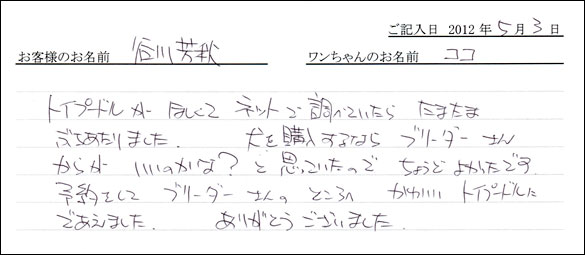 ご記入日 2012年5月3日
お客様のお名前 谷川芳秋 ワンちゃんのお名前 ココ
トイプードルが ほしくて ネットで調べていたら たまたま
ぶちあたりました。 犬を購入するなら ブリーダーさん
からが いいのかな?と思っていたので ちょうどよかったです。
予約をして ブリーダーさんのところへ かわいい トイプードルに
であえました。 ありがとうございました。